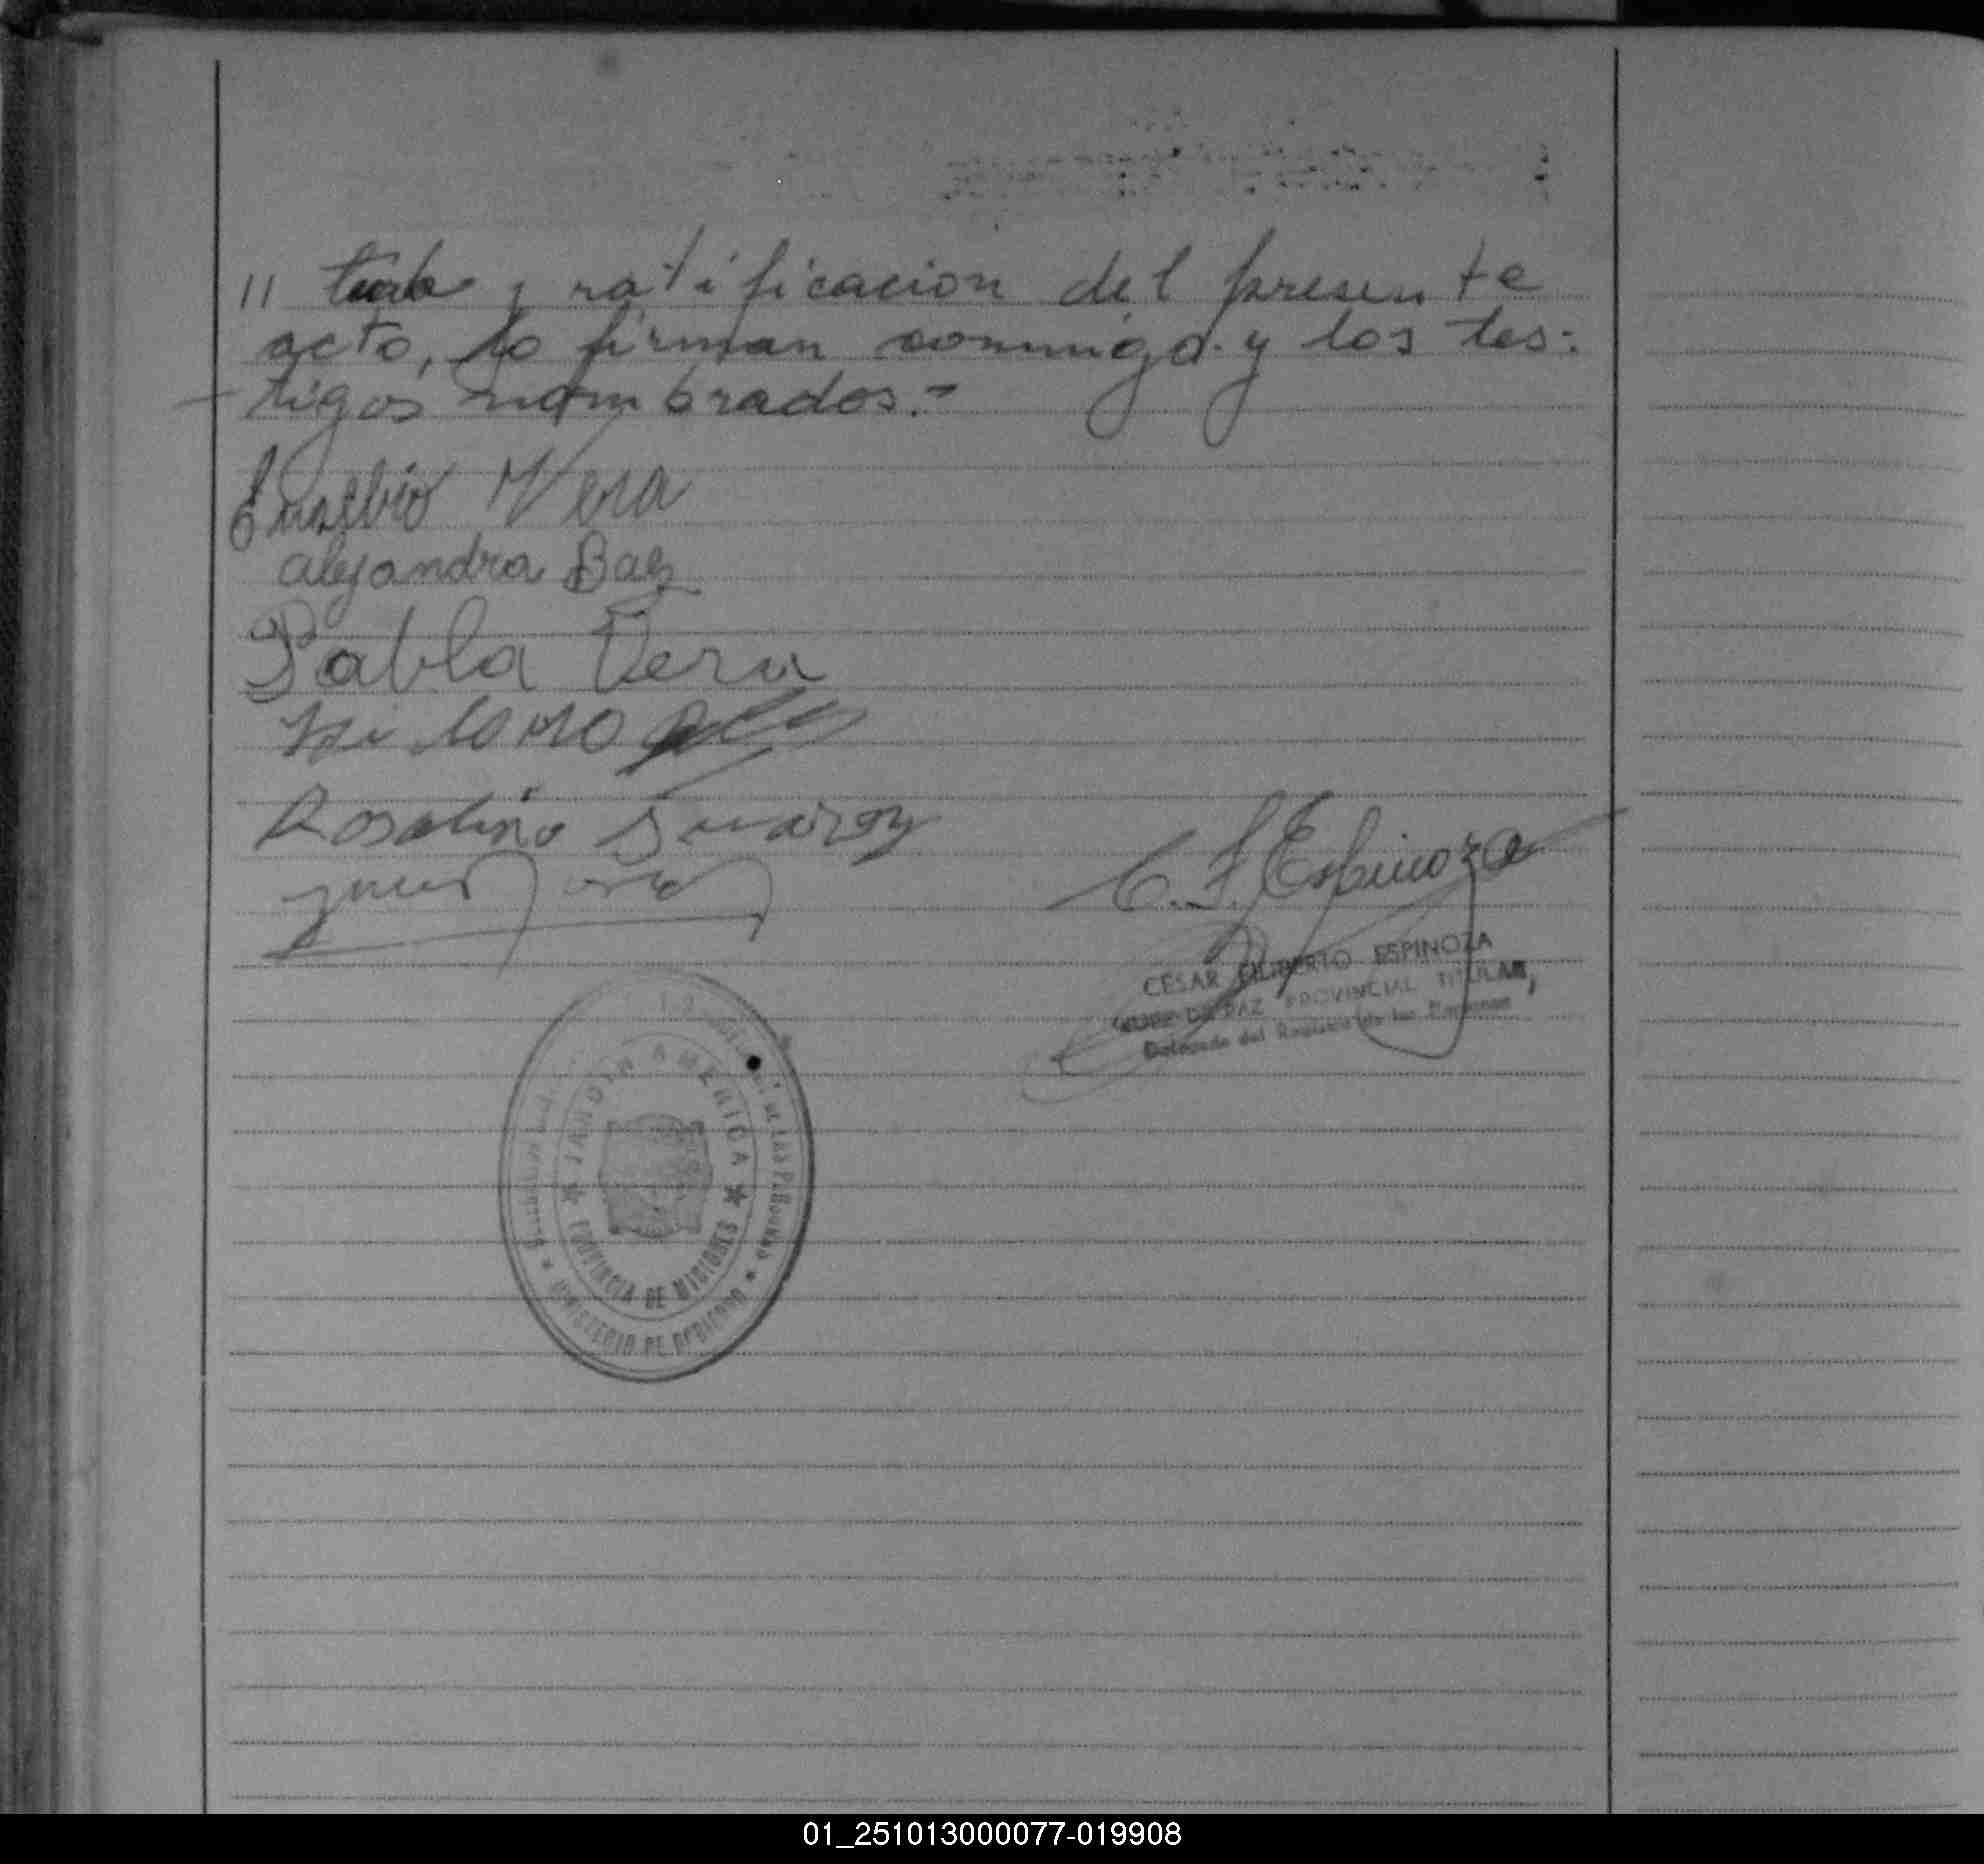 // y ratificacion del presente
acto, lo firman conmigo y los tes:
tigos nombrados.-
Eusebio Vera
alejandra Baez
Pabla Vera
Rosalino Suarez
C. F. Espinoza
CESAR FILIBERTO ESPINOZA
JUEZ DE PAZ PROVINCIAL TITULAR,
Delegado del Registro de las Personas
DE LAS PERSONAS
JARDIN AMERICA
PROVINCIA DE MISIONES
MINISTERIO DE GOBIERNO
01_251013000077-019908